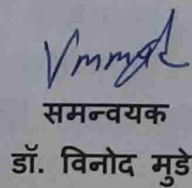 समन्वयक
डॉ. विनोद मुडे